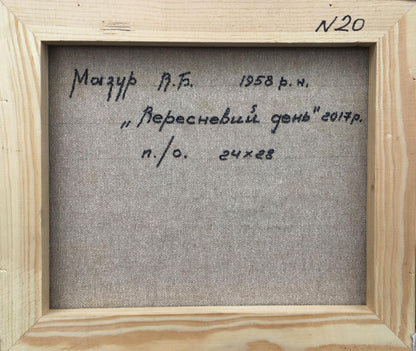 N20
Мазур В.Б. 1958 р.н.
„Вересневий день" 2017р.
п./о. 24×28